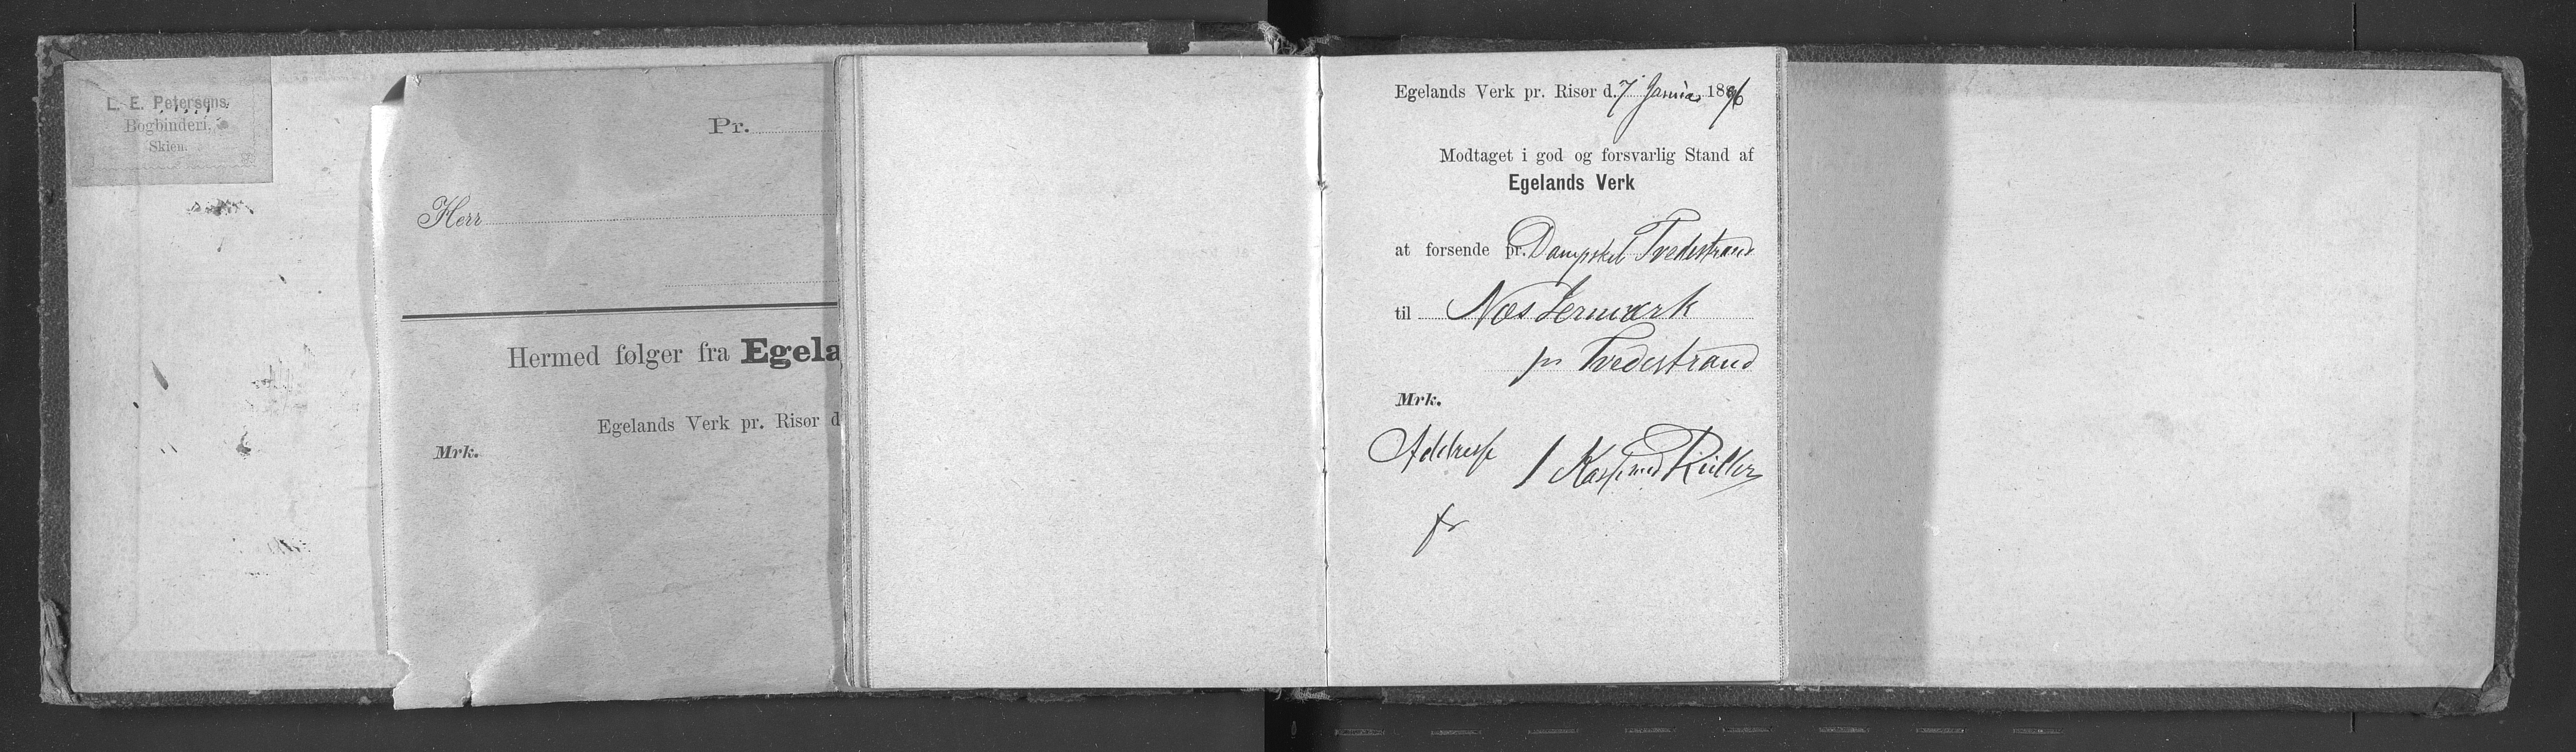 L. E. Petersens
Bogbinderi,
Skien.
Pr.
Herr
Hermed følger fra Egela
Egelands Verk pr. Risør d
Mrk.
Egelands Verk pr. Risør d. 7 Januar 1896
Modtaget i god og forsvarlig Stand af
Egelands Verk
at forsende pr. Dampskib Tvedestrand
til Næs Jernværk
pr Tvedestrand
Mrk.
Adresse 1 Kasse med Ruller
fr